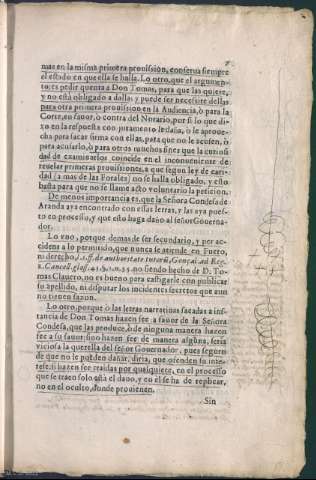 mas en la misma primera prouision, conserua siempre
el estado en que ella se halla. Lo otro, que el argumen-
to es pedir quenta a Don Tomas, para que las quiere,
y no està obligado a dalla; y puede ser necessite dellas
para otra primera prouission en la Audiencia, ò para la
Corte, en fauor, ò contra del Notario, por si lo que di-
xo en la respuesta con juramento le daña, ò le aproue-
cha para sacar firma con ellas, para que no le acusen, ò
para acusarlo, ò para otros muchos fines que la curiosi-
dad de examinarlos coincide en el inconueniente de
reuelar primeras prouissiones, a que segun ley de cari-
dad (a mas de las Forales) no se halla obligado, y esto
basta para que no se llame acto voluntario la peticion.
De menos importancia es, que la Señora Condesa de
Aranda aya encontrado con essas letras, y las aya pues-
to en processo, y que esto haga daño al señor Gouerna-
dor.
Lo vno, porque demas de ser secundario, y per acci-
dens a lo permitido, que nunca se atiende en Fuero,
ni derecho,
no siendo hecho de D. To-
mas Clauero, no es bueno para castigarle con publicar
su apellido, ni disputar los incidentes secretos que aun
no tienen sazon.
Lo otro, porque ò las letras narratiuas sacadas a ins-
tancia de Don Tomas hazen fee a fauor de la Señora
Condesa, que las produce, ò de ninguna manera hazen
fee a su fauor: si no hazen fee de manera alguna, seria
viciosa la querella del señor Gouernador, pues seguro
de que no le pueden dañar, diria, que ofenden su inte-
res: si hazen fee traidas por qualquiere, en el processo
que se traen solo està el daño, y en el se ha de replicar,
no en el oculto, donde prouienen.
Sin